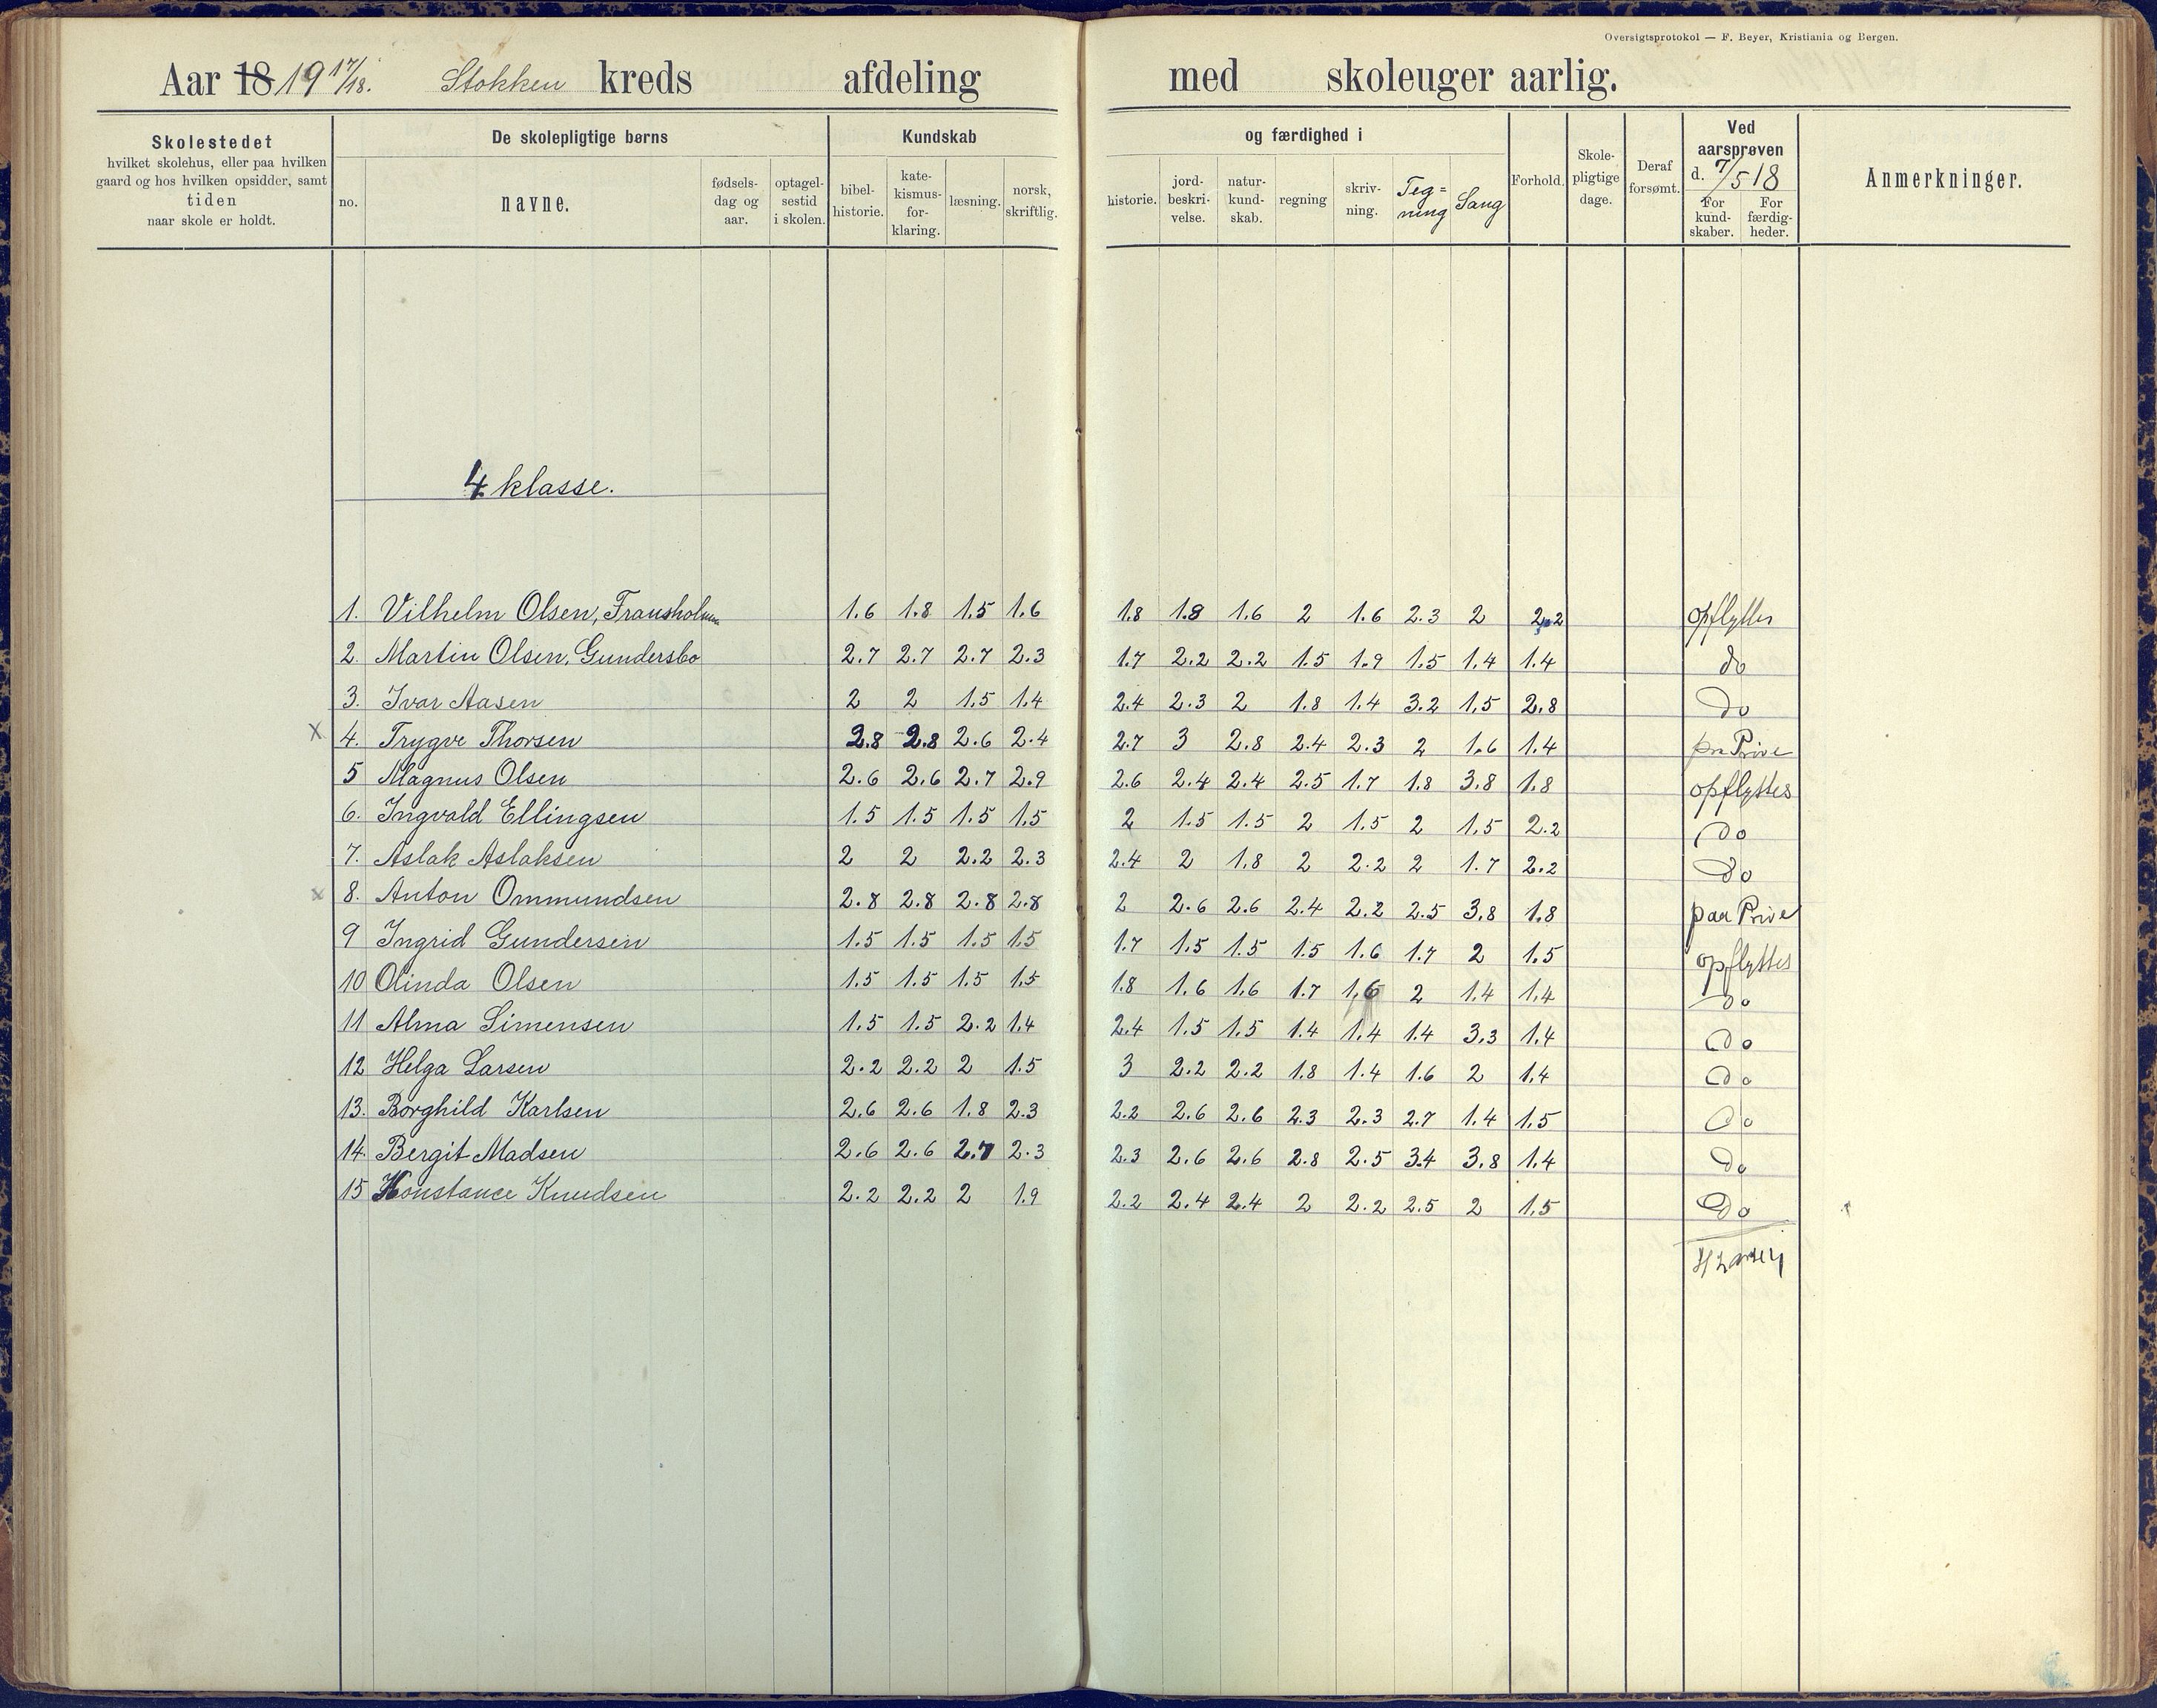 Oversigtsprotokol — F. Beyer, Kristiania og Bergen.
Aar 18 19 17/18. Stokken kreds afdeling med skoleuger aarlig.
Skolestedet
hvilket skolehus, eller paa hvilken
gaard og hos hvilken opsidder, samt
tiden
naar skole er holdt.
De skolepligtige børns
no.
navne.
fødsels-
dag og
aar.
optagel-
sestid
i skolen.
Kundskab
bibel-
historie.
kate-
kismus-
for-
klaring.
læsning.
norsk,
skriftlig.
og færdighed i
historie.
jord-
beskri-
velse.
natur-
kund-
skab.
regning
skriv-
ning.
Teg=
ning
Sang
Forhold.
Skole-
pligtige
dage.
Deraf
forsømt.
Ved
aarsprøven
d. 7/5 18
For
kund-
skaber.
For
færdig-
heder.
Anmerkninger.
4 klasse.
1. Vilhelm Olsen, Fransholmen 1.6 1.8 1.5 1.6 1.8 1.8 1.6 2 1.6 2.3 2 2.2 opflyttes
2. Martin Olsen, Gundersbo 2.7 2.7 2.7 2.3 1.7 2.2 2.2 1.5 1.9 1.5 1.4 1.4 do
3. Ivar Aasen 2 2 1.5 1.4 2.4 2.3 2 1.8 1.4 3.2 1.5 2.8 do
x 4. Trygve Thorsen 2.8 2.8 2.6 2.4 2.7 3 2.8 2.4 2.3 2 1.6 1.4 Prøve
5 Magnus Olsen 2.6 2.6 2.7 2.9 2.6 2.4 2.4 2.5 1.7 1.8 3.8 1.8 opflyttes
6. Ingvald Ellingsen 1.5 1.5 1.5 1.5 2 1.5 1.5 2 1.5 2 1.5 2.2 do
7. Aslak Aslaksen 2 2 2.2 2.3 2.4 2 1.8 2 2.2 2 1.7 2.2 do
x 8. Anton Ommundsen 2.8 2.8 2.8 2.8 2 2.6 2.6 2.4 2.2 2.5 3.8 1.8 paa Prøve
9 Ingrid Gundersen 1.5 1.5 1.5 1.5 1.7 1.5 1.5 1.5 1.6 1.7 2 1.5 opflyttes
10 Olinda Olsen 1.5 1.5 1.5 1.5 1.8 1.6 1.6 1.7 1.6 2 1.4 1.4 do
11 Alma Simensen 1.5 1.5 2.2 1.4 2.4 1.5 1.5 1.4 1.4 1.4 3.3 1.4 do
12 Helga Larsen 2.2 2.2 2 1.5 3 2.2 2.2 1.8 1.4 1.6 2 1.4 do
13. Borghild Karlsen 2.6 2.6 1.8 2.3 2.2 2.6 2.6 2.3 2.3 2.7 1.4 1.5 do
14. Bergit Madsen 2.6 2.6 2.7 2.3 2.3 2.6 2.6 2.8 2.5 3.4 3.8 1.4 do
15 Konstance Knudsen 2.2 2.2 2 1.9 2.2 2.4 2.4 2 2.2 2.5 2 1.5 do